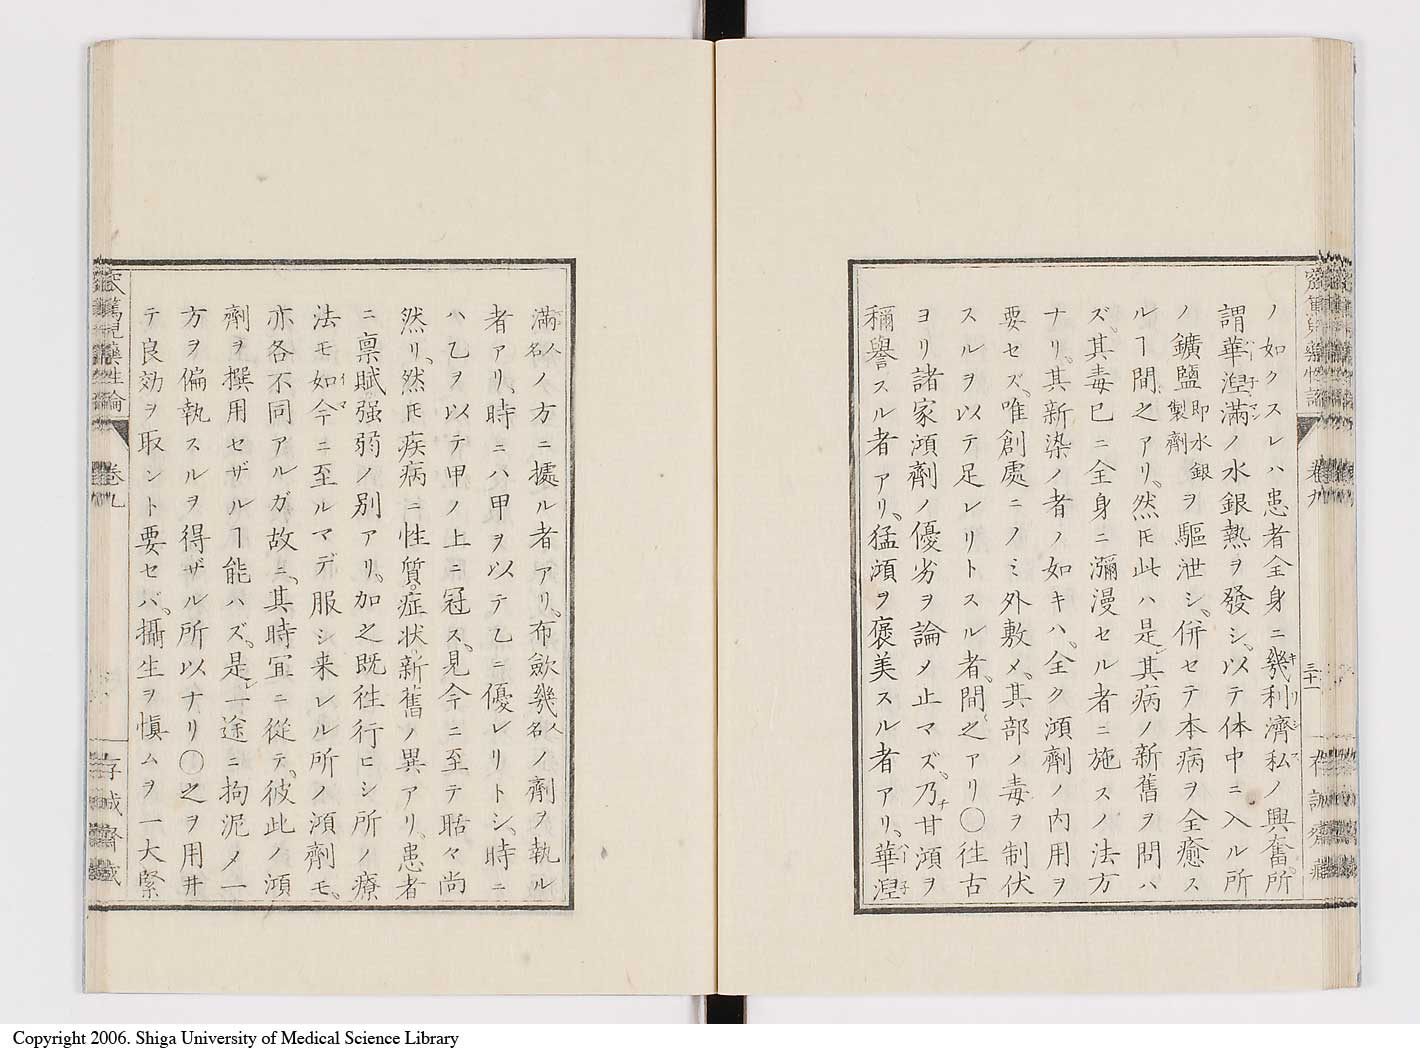 ノ如クスレハ患者全身ニ幾利濟私ノ興奮、所
謂華湼滿ノ水銀熱ヲ發シ、以テ体中ニ入ル所
ノ鑛鹽即水銀製劑ヲ驅泄シ、併セテ本病ヲ全癒ス
ルヿ間之アリ、然モ此ハ是其病ノ新舊ヲ問ハ
ズ、其毒已ニ全身ニ瀰漫セル者ニ施スノ法方
ナリ、其新染ノ者ノ如キハ、全ク澒劑ノ内用ヲ
要セズ、唯創處ニノミ外敷メ、其部ノ毒ヲ制伏
スルヲ以テ足レリトスル者、間之アリ〇往古
ヨリ諸家澒劑ノ優劣ヲ論メ止マズ、乃チ甘澒ヲ
稱譽スル者アリ、猛澒ヲ褒美スル者アリ、華湼
卷九
三十一
滿人名ノ方ニ據ル者アリ、布歛幾人名ノ劑ヲ執ル
者アリ、時ニハ甲ヲ以テ乙ニ優レリトシ、時ニ
ハ乙ヲ以テ甲ノ上ニ冠ス、見今ニ至テ聒々尚
然リ、然モ疾病ニ性質症状新舊ノ異アリ、患者
ニ禀賦强弱ノ別アリ、加之既徃行ヒシ所ノ療
法モ如今ニ至ルマデ服シ来レル所ノ澒劑モ、
亦各不同アルガ故ニ、其時宜ニ從テ、彼此ノ澒
劑ヲ撰用セザルヿ能ハズ、是一途ニ拘泥メ一
方ヲ偏執スルヲ得ザル所以ナリ〇之ヲ用井
テ良効ヲ取ント要セバ、攝生ヲ愼ムヲ一大緊
卷九
Copyright 2006. Shiga University of Medical Science Library